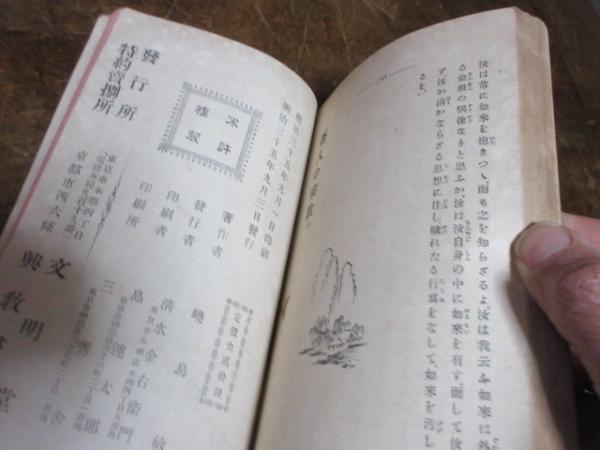 汝は常に如來を抱きつゝ、而も之を知らざるよ、汝は我云ふ如來は外
る金銀の偶像なりと思ふか、汝は汝自身の中に如來を有す、而して汝
ア、汝か清かならざる思想に住し、穢れたる行爲をなして、如來を汚し
るよ。
吾人の宗敎
明治三十五年九月一日印刷
明治三十五年九月三日發行
不許
複製
定價金貳拾錢
著作者 曉烏敏
發行者 清水金右衛門
印刷者 島連太郎
印刷所 三秀舍
發行所 文明堂
特約賣捌所 興敎
京都市西六條